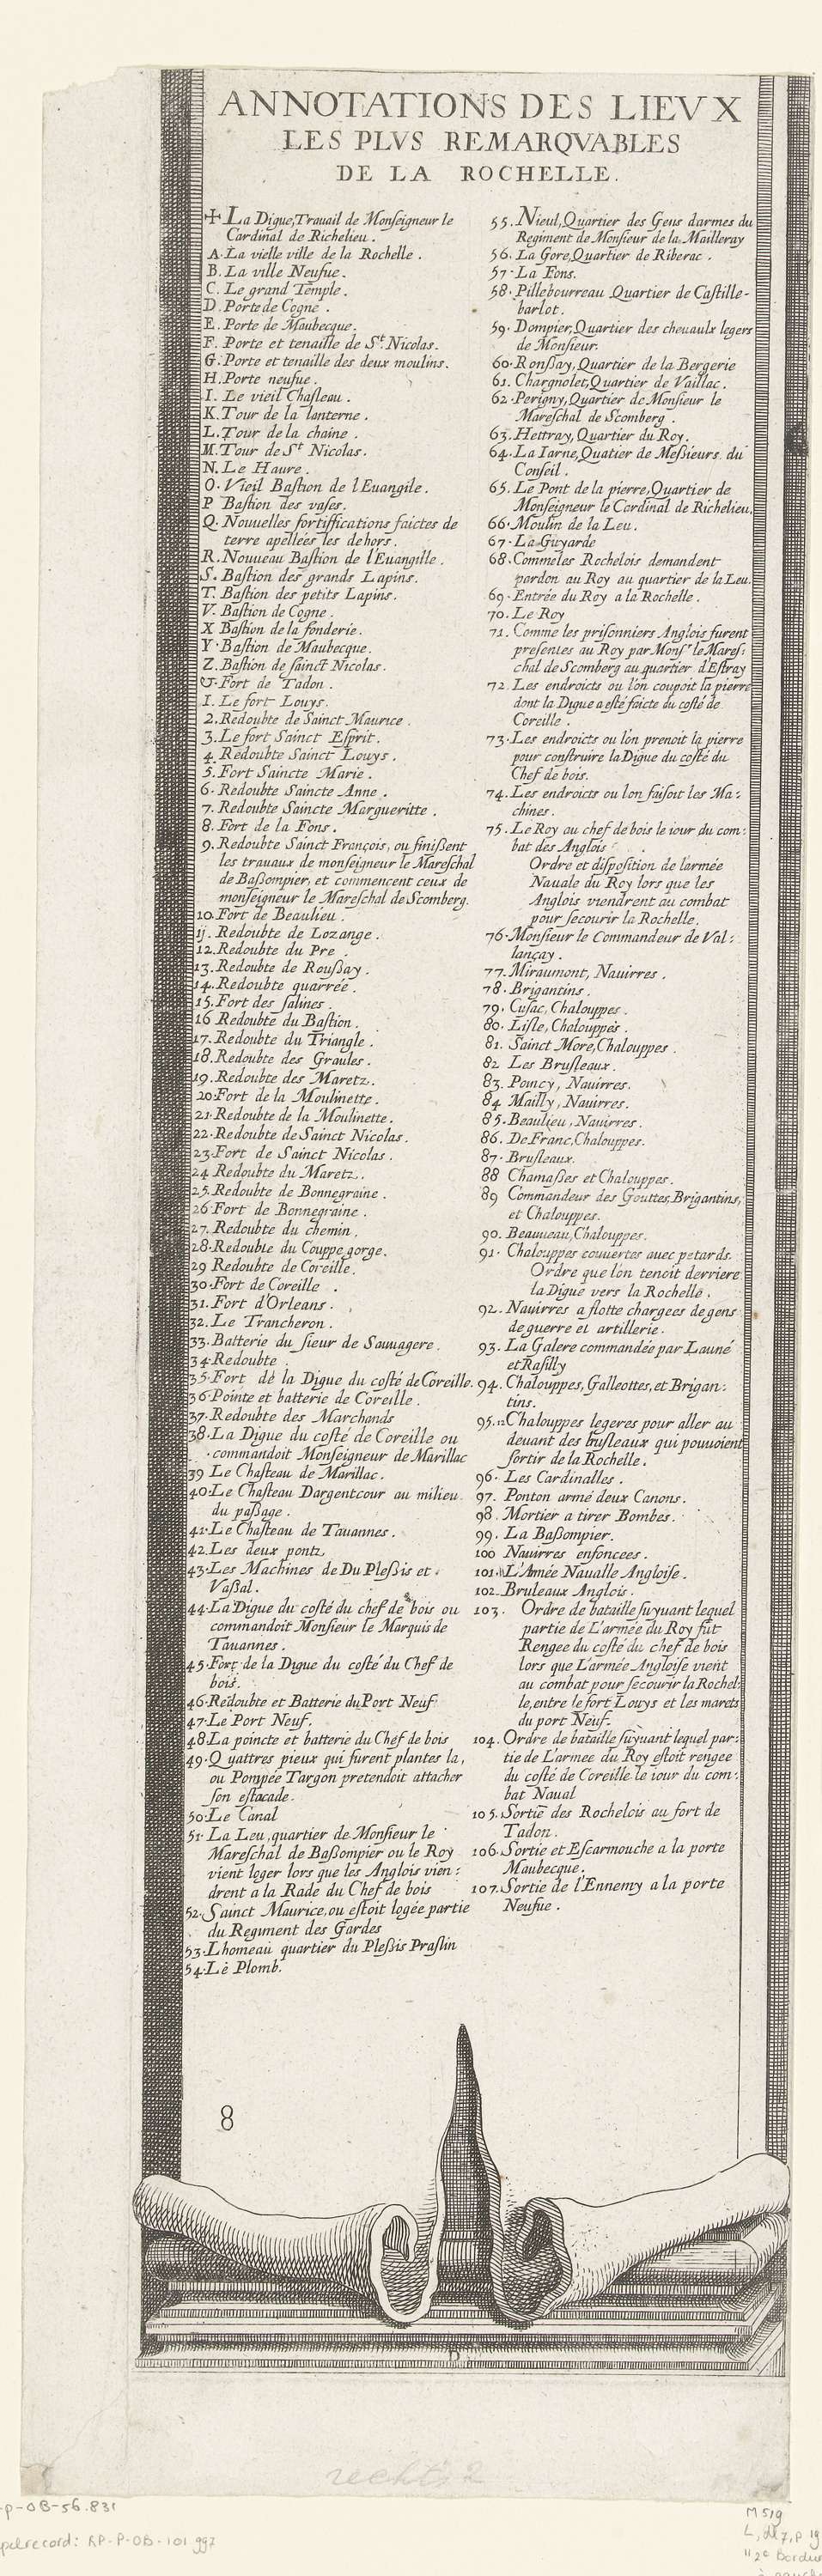 ANNOTATIONS DES LIEVX
LES PLVS REMARQVABLES
DE LA ROCHELLE.
✠ La Digue, Trauail de Monſeigneur le
Cardinal de Richelieu.
A. La vielle ville de la Rochelle.
B. La ville Neufue.
C. Le grand Temple.
D. Porte de Cogne.
E. Porte de Maubecque.
F. Porte et tenaille de St. Nicolas.
G. Porte et tenaille des deux moulins.
H. Porte neufue.
I. Le vieil Chaſteau.
K. Tour de la lanterne.
L. Tour de la chaine.
M. Tour de St Nicolas.
N. Le Haure.
O. Vieil Baſtion de l'Euangile.
P Baſtion des vaſes.
Q. Nouuelles fortiffications faictes de
terre apellées les dehors.
R. Nouueau Baſtion de l'Euangille.
S. Baſtion des grands Lapins.
T. Baſtion des petits Lapins.
V. Baſtion de Cogne.
X Baſtion de la fonderie.
Y. Baſtion de Maubecque.
Z. Baſtion de ſainct Nicolas.
Fort de Tadon.
1. Le fort Louys.
2. Redoubte de Sainct Maurice.
3. Le fort Sainct Eſprit.
4. Redoubte Sainct Louys.
5. Fort Saincte Marie.
6. Redoubte Saincte Anne.
7. Redoubte Saincte Margueritte.
8. Fort de la Fons.
9. Redoubte Sainct François, ou finißent
les trauaux de monſeigneur le Mareſchal
de Baßompier, et commencent ceux de
monſeigneur le Mareſchal de Scomberg.
10. Fort de Beaulieu.
11. Redoubte de Lozange.
12. Redoubte du Pre.
13. Redoubte de Roußay.
14. Redoubte quarrée.
15. Fort des ſalines.
16 Redoubte du Baſtion.
17. Redoubte du Triangle.
18. Redoubte des Graules.
19. Redoubte des Maretz.
20. Fort de la Moulinette.
21. Redoubte de la Moulinette.
22. Redoubte de Sainct Nicolas.
23. Fort de Sainct Nicolas.
24 Redoubte du Maretz.
25. Redoubte de Bonnegraine.
26 Fort de Bonnegraine.
27. Redoubte du chemin.
28. Redoubte du Couppe gorge.
29 Redoubte de Coreille.
30. Fort de Coreille.
31. Fort d'Orleans.
32. Le Trancheron.
33. Batterie du ſieur de Sauuagere.
34. Redoubte.
35. Fort de la Digue du coſté de Coreille.
36 Pointe et batterie de Coreille.
37. Redoubte des Marchands
38. La Digue du coſté de Coreille ou
commandoit Monſeigneur de Marillac
39 Le Chaſteau de Marillac.
40. Le Chaſteau Dargentcour au milieu
du paßage.
41. Le Chaſteau de Tauannes.
42. Les deux pontz
43. Les Machines de Du Pleßis et
Vaßal.
44. La Digue du coſté du chef de bois ou
commandoit Monſieur le Marquis de
Tauannes.
45. Fort de la Digue du coſté du Chef de
bois.
46. Redoubte et Batterie du Port Neuf
47. Le Port Neuf.
48. La poincte et batterie du Chef de bois
49. Quattres pieux qui furent plantes la,
ou Pompée Targon pretendoit attacher
ſon eſtacade.
50. Le Canal
51. La Leu, quartier de Monſieur le
Mareſchal de Baßompier ou le Roy
vient loger lors que les Anglois vien:
drent a la Rade du Chef de bois
52. Sainct Maurice, ou eſtoit logée partie
du Regiment des Gardes
53. Lhomeau quartier du Pleßis Praſlin
54. Le Plomb.
55. Nieul, Quartier des Gens darmes du
Regiment de Monſieur de la Mailleray
56. La Gore, Quartier de Riberac.
57. La Fons.
58. Pillebourreau Quartier de Caſtille-
barlot.
59. Dompier, Quartier des cheuaulx legers
de Monſieur.
60. Ronſſay, Quartier de la Bergerie
61. Chargnolet, Quartier de Vaillac.
62. Perigny, Quartier de Monſieur le
Mareſchal de Scomberg.
63. Hettray, Quartier du Roy.
64. La Iarne, Quatier de Meßieurs du
Conſeil.
65. Le Pont de la pierre, Quartier de
Monſeigneur le Cardinal de Richelieu.
66. Moulin de la Leu.
67. La Guyarde
68. Comme les Rochelois demandent
pardon au Roy au quartier de la Leu.
69. Entrée du Roy a la Rochelle.
70. Le Roy
71. Comme les priſonniers Anglois furent
preſentes au Roy par Monſr le Mareſ:
chal de Scomberg au quartier d'Eſtray
72. Les endroicts ou l'on coupoit la pierre
dont la Digue a eſté faicte du coſté de
Coreille.
73. Les endroicts ou l'on prenoit la pierre
pour conſtruire la Digue du coſté du
Chef de bois.
74. Les endroicts ou l'on faiſoit les Ma:
chines.
75. Le Roy au chef de bois le iour du com:
bat des Anglois
Ordre et diſpoſition de l'armée
Nauale du Roy lors que les
Anglois viendrent au combat
pour ſecourir la Rochelle.
76. Monſieur le Commandeur de Val:
lançay.
77. Miraumont, Nauirres.
78. Brigantins.
79. Cuſac, Chalouppes.
80. Liſle, Chalouppes.
81. Sainct More, Chalouppes.
82 Les Bruſleaux.
83. Poincy, Nauirres.
84 Mailly, Nauirres.
85. Beaulieu, Nauirres.
86. De Franc, Chalouppes.
87. Bruſleaux.
88 Chamaßes et Chalouppes.
89 Commandeur des Gouttes, Brigantins,
et Chalouppes.
90. Beauueau, Chalouppes.
91. Chalouppes couuertes auec petards.
Ordre que l'on tenoit derriere
la Digue vers la Rochelle.
92. Nauirres a flotte chargees de gens
de guerre et artillerie.
93. La Galere commandée par Launé
et Raſilly
94. Chalouppes, Galleottes, et Brigan:
tins.
95. 12 Chalouppes legeres pour aller au
deuant des bruſleaux qui pouuoient
ſortir de la Rochelle.
96. Les Cardinalles.
97. Ponton armé deux Canons.
98. Mortier a tirer Bombes.
99. La Baßompier.
100 Nauirres enfoncees.
101. L'Amée Naualle Angloiſe.
102. Bruleaux Anglois.
103. Ordre de bataille ſuyuant lequel
partie de L'armée du Roy fut
Rengee du coſté du chef de bois
lors que L'armée Angloiſe vient
au combat pour ſecourir la Rochel:
le, entre le fort Louys et les marets
du port Neuf.
104. Ordre de bataille ſuyuant lequel par:
tie de L'armee du Roy eſtoit rengee
du coſté de Coreille le iour du com:
bat Naual
105. Sortie des Rochelois au fort de
Tadon.
106. Sortie et Eſcarmouche a la porte
Maubecque.
107. Sortie de l'Ennemy a la porte
Neufue.
8
D
rechts 2
-P-OB-56.831
pelrecord: RP-P-OB-101 997
M 519